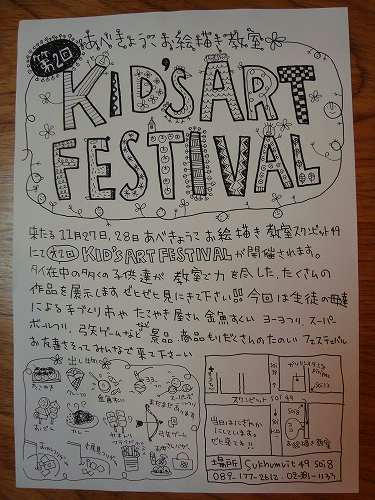 第2回
あべきょうこ お絵描き教室
KID'S ART
FESTIVAL
来たる 11月27日, 28日 あべきょうこ お絵描き教室スクンビット49
にて 第2回 KID'S ART FESTIVAL が開催されます。
タイ在中の多くの子供達が 教室で力を尽した、たくさんの
作品を展示します。ぜひぜひ見にきて下さい 今回は生徒の母達
による手づくり市や たこやき屋さん 金魚すくい ヨーヨーつり、スーパー
ボールつり、弓矢ゲームなど 景品、商品もりだくさんのたのしい フェスティバル
お友達さそって みんなで 来て下さい
出し物
クレープ
金魚すくい
おでん
カレー
弓矢ゲーム
スクンビット SOI 49
Soi 8
お絵描き教室
当日はにぎやか
にしています。
ぜひ来てネ!!
場所 Sukhumvit 49 Soi 8